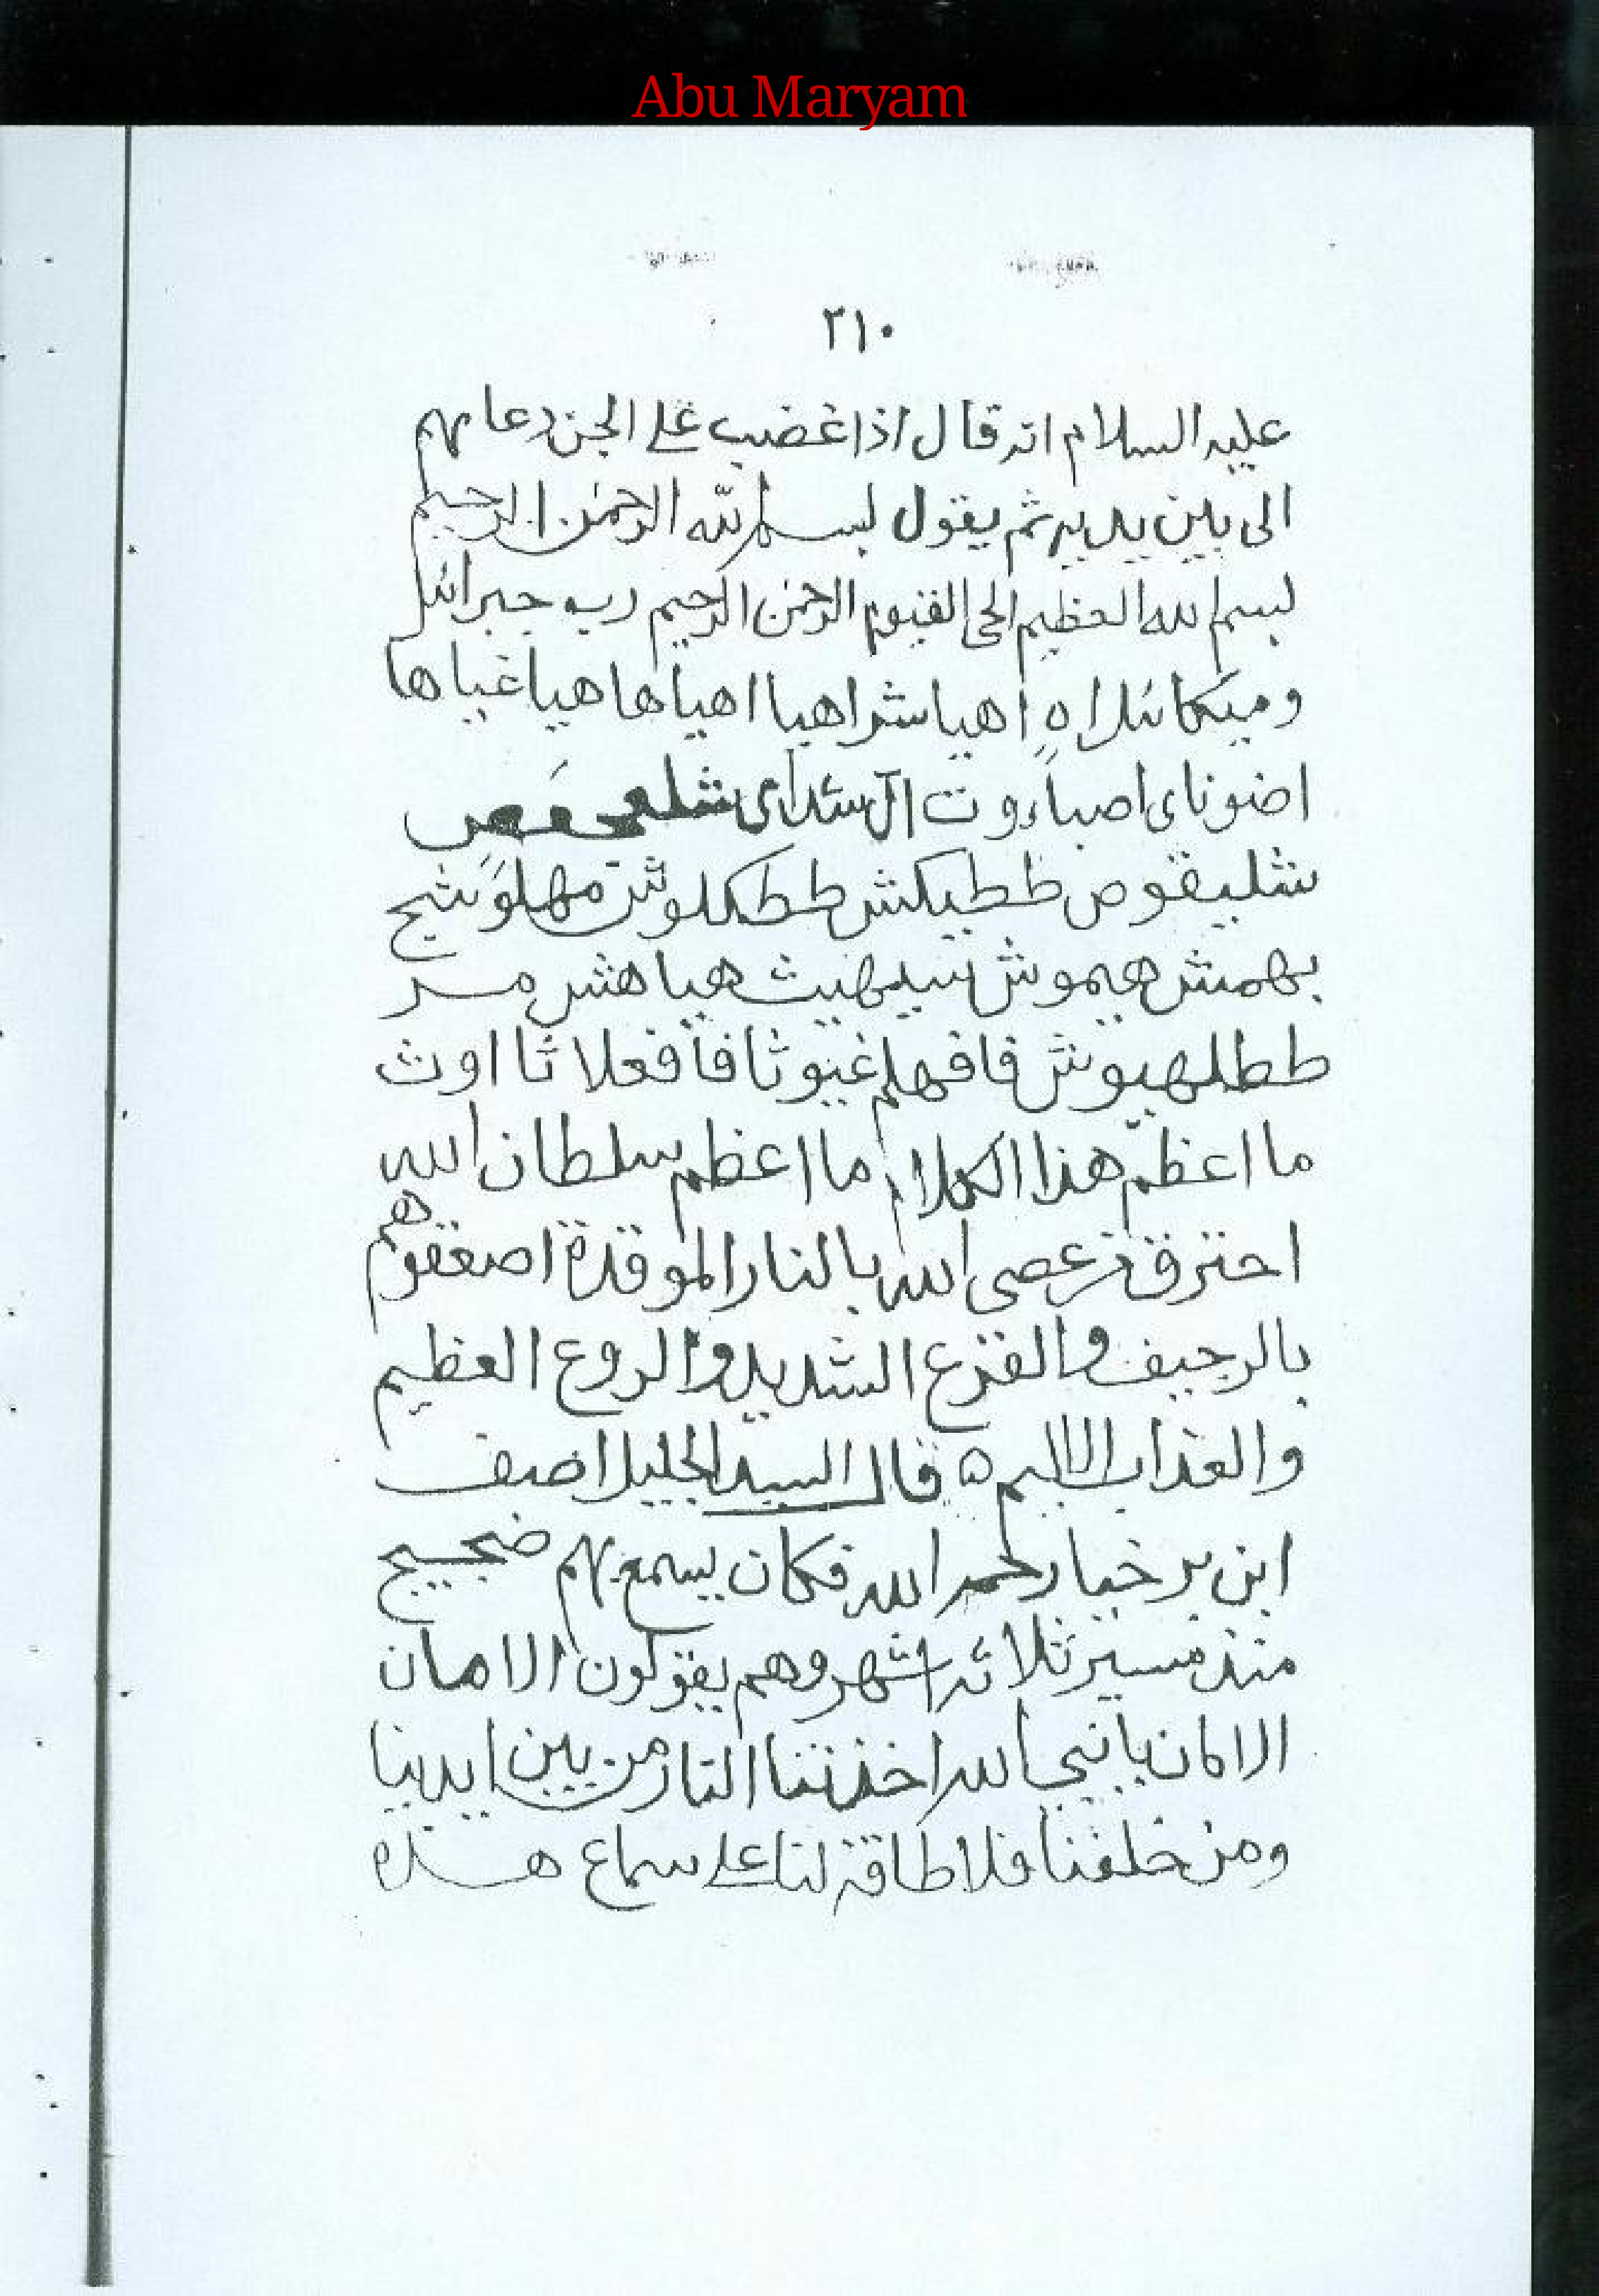 Abu Maryam
٢١٠
عليه السلام انه قال اذا غضب على الجن دعا بهم
الى بين يديه ثم يقول بسم الله الرحمن الرحيم
بسم الله العظيم الحى القيوم الرحمن الرحيم رب جبرائل
وميكائل اهٍ اهيا شراهيا اهيا ها هيا غيا ها
اضوناى اصباءوت ال شداى
شليقوص ططيكش ططكلوش مهلوشح
بهمش هيموش هيا هش مر
ططلهيوش فافهلم غيوثا فافعلاثا اوث
ما اعظم هذا الكلام ما اعظم سلطان الله
احترق من عصى الله بالنار الموقدة اصعقوهم
بالرجيف والفزع الشديد والروع العظيم
والعذاب الاليم ه قال السيد الجليل اصف
ابن برخيا رحمه الله فكان يسمع بهم ضجيج
منذ مسير ثلاثه اشهر وهم يقولون الامان
الامان يا نبي الله اخذتنا النار من بين ايدينا
ومن خلفنا فلا طاقه لنا على سماع هذه